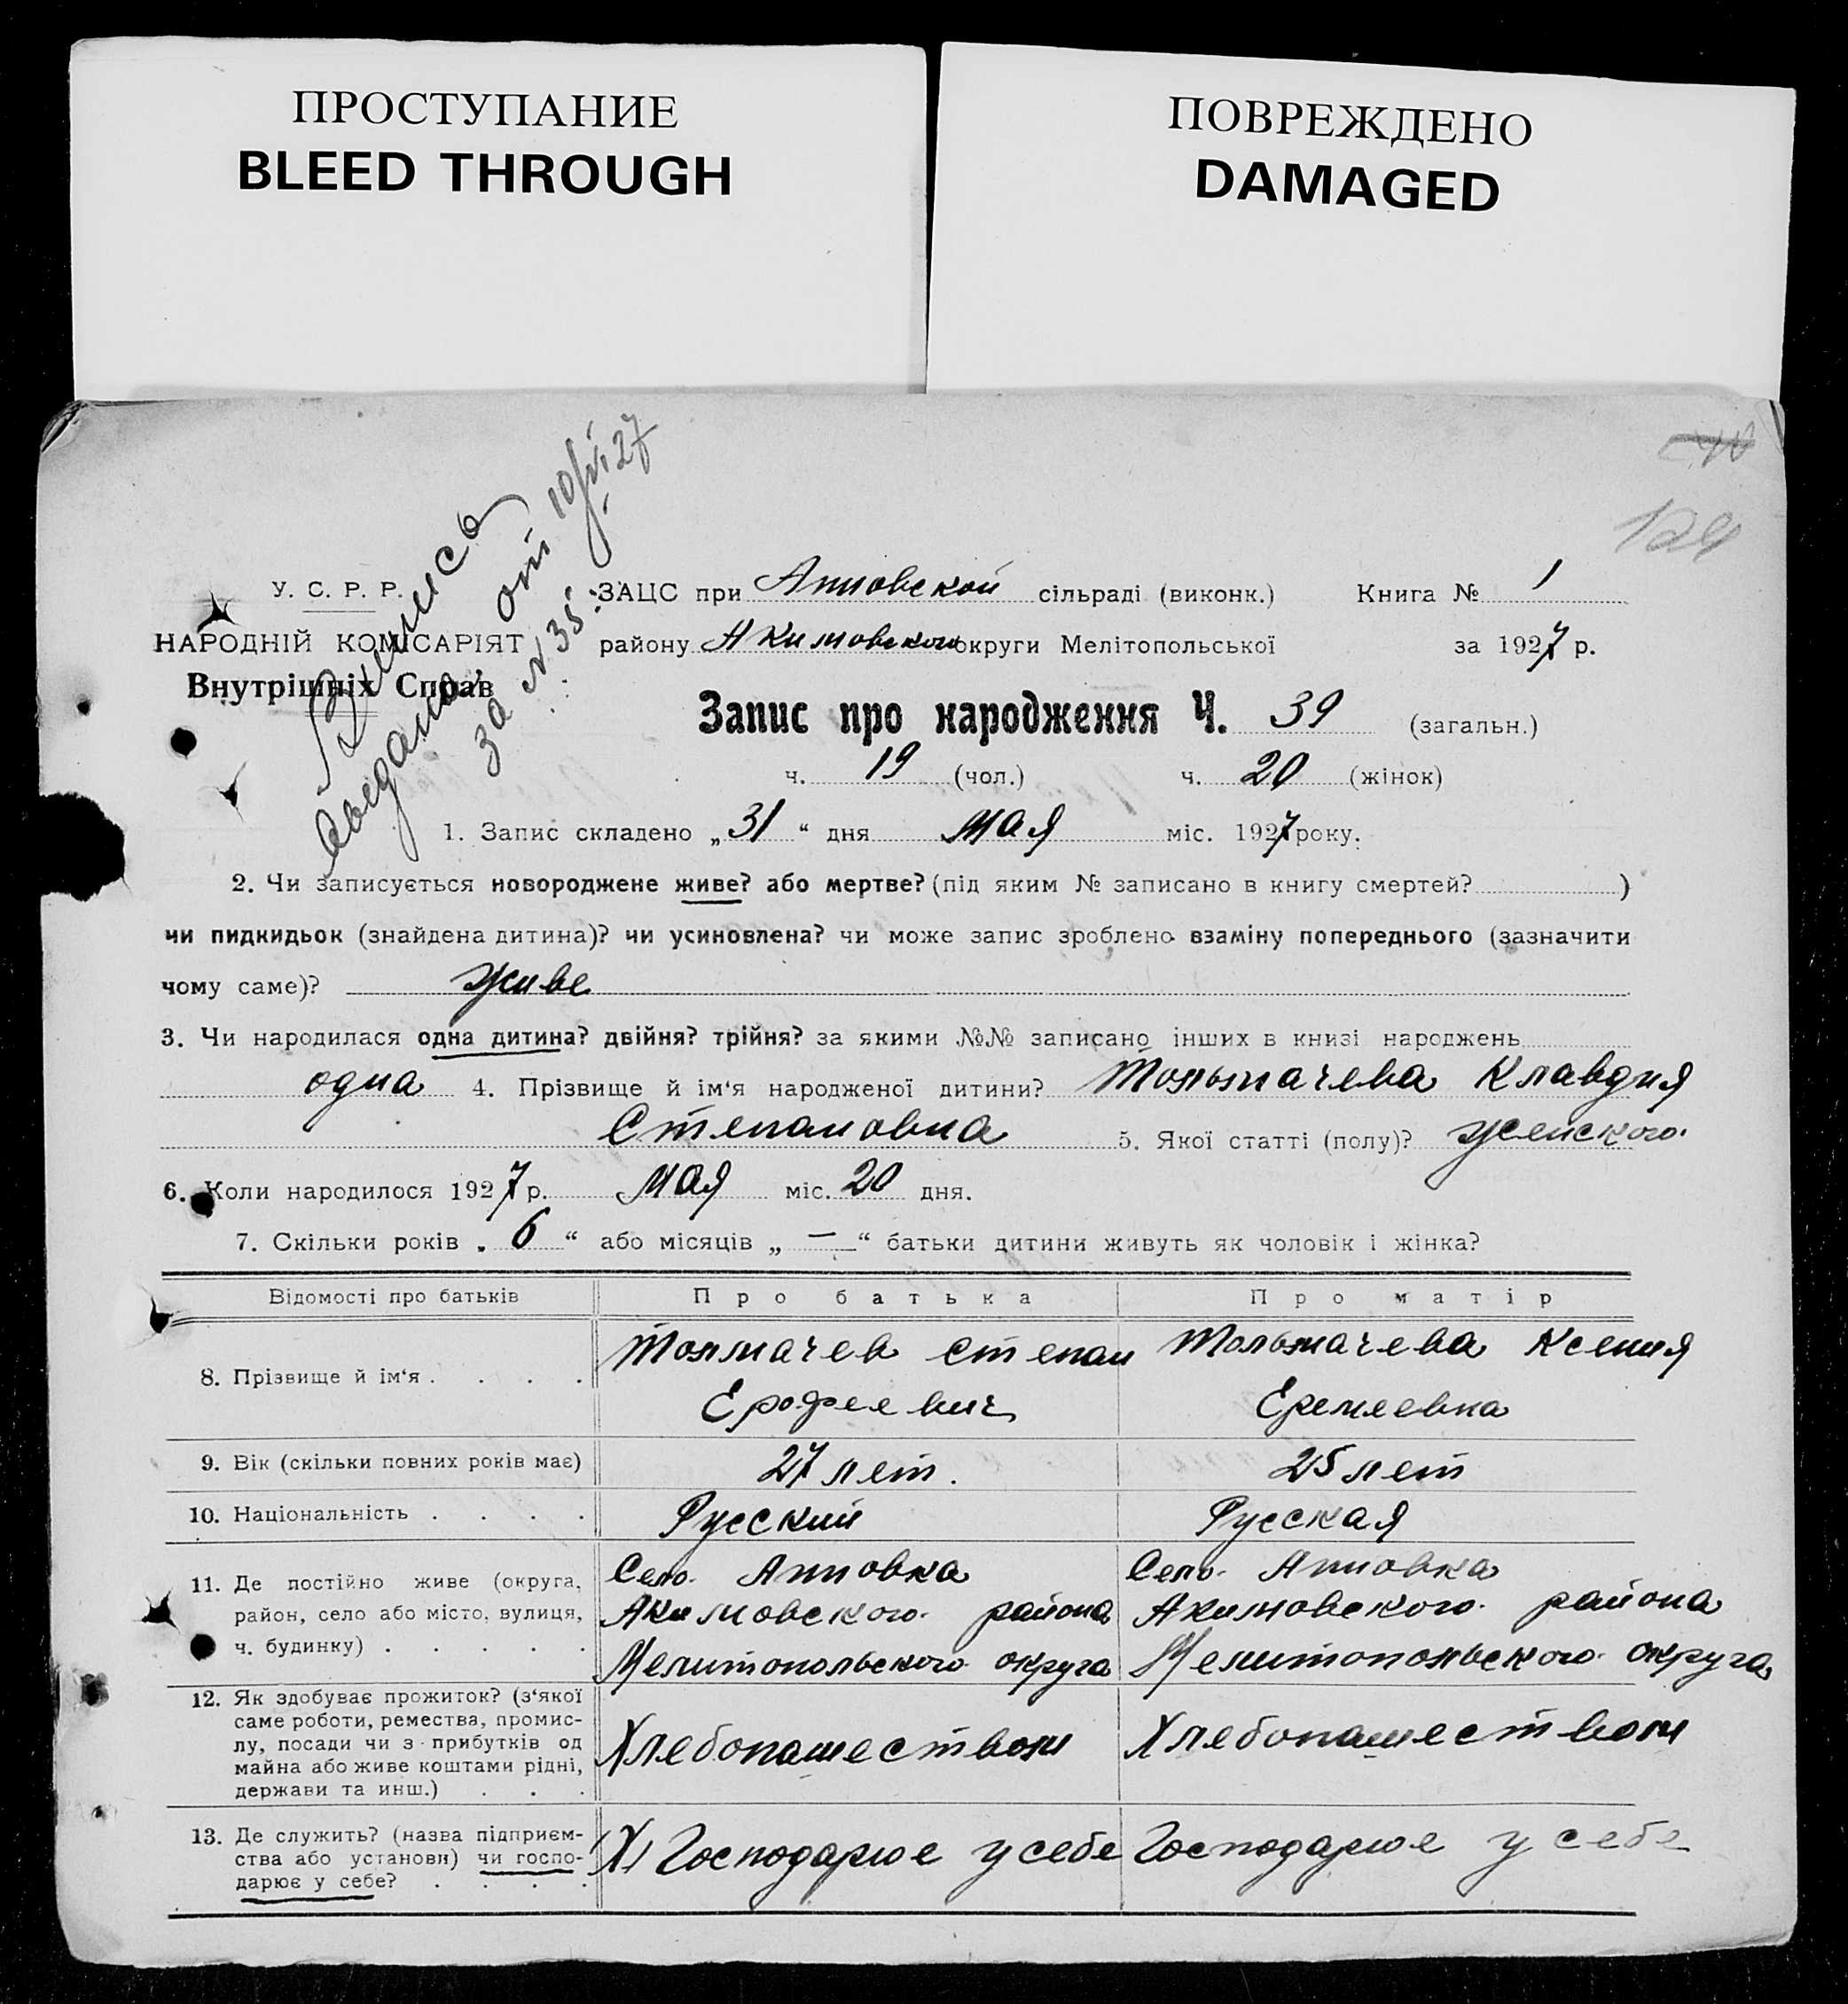 ПРОСТУПАНИЕ
BLEED THROUGH
ПОВРЕЖДЕНО
DAMAGED
40
124
Выпись
выдана от 10/VI 27
за № 35.
У. С. Р. Р.
НАРОДНІЙ КОМІСАРІЯТ
Внутрішніх Справ
ЗАЦС при Анновской сільраді (виконк.) Книга № 1
району Акимовского округи Мелітопольської за 1927 р.
Запис про народження Ч. 39 (загальн.)
ч. 19 (чол.) ч. 20 (жінок)
1. Запис складено „31“ дня мая міс. 1927 року.
2. Чи записується новороджене живе? або мертве? (під яким № записано в книгу смертей? )
чи пидкидьок (знайдена дитина)? чи усиновлена? чи може запис зроблено взаміну попереднього (зазначити
чому саме)? живе
3. Чи народилася одна дитина? двійня? трійня? за якими №№ записано інших в книзі народжень
одна 4. Прізвище й ім‘я народженої дитини? Тольмачева Клавдия
Степановна 5. Якої статті (полу)? женского.
6. Коли народилося 1927 р. мая міс. 20 дня.
7. Скільки років „6“ або місяців „—“ батьки дитини живуть як чоловік і жінка?
Відомості про батьків Про батька Про матір
8. Прізвище й ім‘я . . . . Толмачев Степан Ерофеевич Тольмачева Ксения Еремеевна
9. Вік (скільки повних років має) 27 лет. 25 лет
10. Національність . . . . Русский Русская
11. Де постійно живе (округа, район, село або місто, вулиця, ч. будинку) . . . . .
Село. Анновка Акимовского. района Мелитопольского округа
Село. Анновка Акимовского. района Мелитопольского. округа
12. Як здобуває прожиток? (з‘якої саме роботи, ремества, промис-
лу, посади чи з прибутків од майна або живе коштами рідні,
держави та инш.) . . .
Хлебопашеством Хлебопашеством
13. Де служить? (назва підприєм-
ства або установи) чи госпо-
дарює у себе? . . . .
Господарюе у себе Господарюе у себе